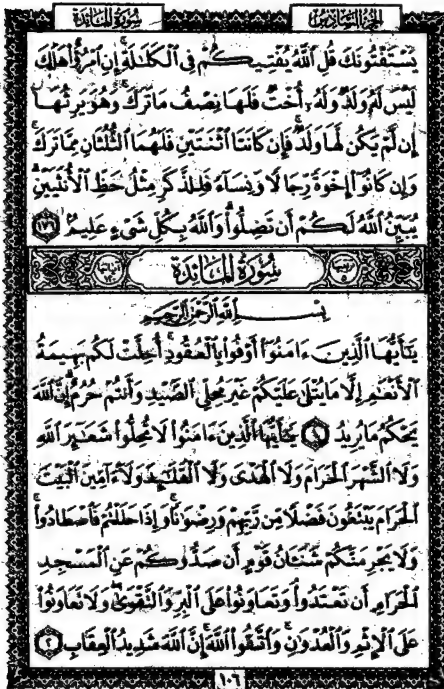 الجزء السادس
سورة المائدة
يَسْتَفْتُونَكَ قُلِ ٱللَّهُ يُفْتِيكُمْ فِى ٱلْكَلَـٰلَةِ ۚ إِنِ ٱمْرُؤٌا۟ هَلَكَ
لَيْسَ لَهُۥ وَلَدٌ وَلَهُۥٓ أُخْتٌ فَلَهَا نِصْفُ مَا تَرَكَ ۚ وَهُوَ يَرِثُهَآ
إِن لَّمْ يَكُن لَّهَا وَلَدٌ ۚ فَإِن كَانَتَا ٱثْنَتَيْنِ فَلَهُمَا ٱلثُّلُثَانِ مِمَّا تَرَكَ ۚ
وَإِن كَانُوٓا۟ إِخْوَةً رِّجَالًا وَنِسَآءً فَلِلذَّكَرِ مِثْلُ حَظِّ ٱلْأُنثَيَيْنِ ۗ
يُبَيِّنُ ٱللَّهُ لَكُمْ أَن تَضِلُّوا۟ ۗ وَٱللَّهُ بِكُلِّ شَىْءٍ عَلِيمٌۢ ١٧٦
سورة المائدة
بِسْمِ ٱللَّهِ ٱلرَّحْمَـٰنِ ٱلرَّحِيمِ
يَـٰٓأَيُّهَا ٱلَّذِينَ ءَامَنُوٓا۟ أَوْفُوا۟ بِٱلْعُقُودِ ۚ أُحِلَّتْ لَكُم بَهِيمَةُ
ٱلْأَنْعَـٰمِ إِلَّا مَا يُتْلَىٰ عَلَيْكُمْ غَيْرَ مُحِلِّى ٱلصَّيْدِ وَأَنتُمْ حُرُمٌ ۗ إِنَّ ٱللَّهَ
يَحْكُمُ مَا يُرِيدُ ١ يَـٰٓأَيُّهَا ٱلَّذِينَ ءَامَنُوا۟ لَا تُحِلُّوا۟ شَعَـٰٓئِرَ ٱللَّهِ
وَلَا ٱلشَّهْرَ ٱلْحَرَامَ وَلَا ٱلْهَدْىَ وَلَا ٱلْقَلَـٰٓئِدَ وَلَآ ءَآمِّينَ ٱلْبَيْتَ
ٱلْحَرَامَ يَبْتَغُونَ فَضْلًا مِّن رَّبِّهِمْ وَرِضْوَٰنًا ۚ وَإِذَا حَلَلْتُمْ فَٱصْطَادُوا۟ ۚ
وَلَا يَجْرِمَنَّكُمْ شَنَـَٔانُ قَوْمٍ أَن صَدُّوكُمْ عَنِ ٱلْمَسْجِدِ
ٱلْحَرَامِ أَن تَعْتَدُوا۟ ۘ وَتَعَاوَنُوا۟ عَلَى ٱلْبِرِّ وَٱلتَّقْوَىٰ ۖ وَلَا تَعَاوَنُوا۟
عَلَى ٱلْإِثْمِ وَٱلْعُدْوَٰنِ ۚ وَٱتَّقُوا۟ ٱللَّهَ ۖ إِنَّ ٱللَّهَ شَدِيدُ ٱلْعِقَابِ ٢
١٠٦